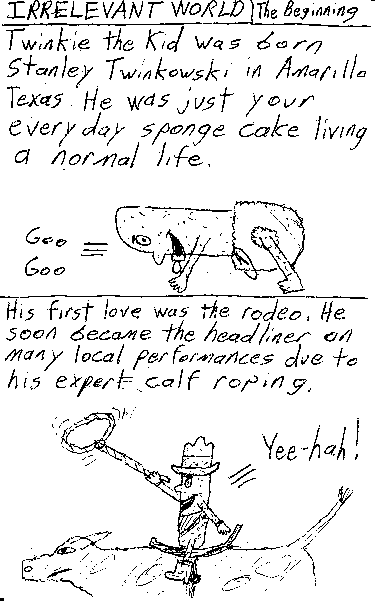 IRRELEVANT WORLD | The Beginning
Twinkie the Kid was born
Stanley Twinkowski in Amarillo
Texas. He was just your
everyday sponge cake living
a normal life.
Goo
Goo
His first love was the rodeo. He
soon became the headliner on
many local performances due to
his expert calf roping.
Yee-hah!